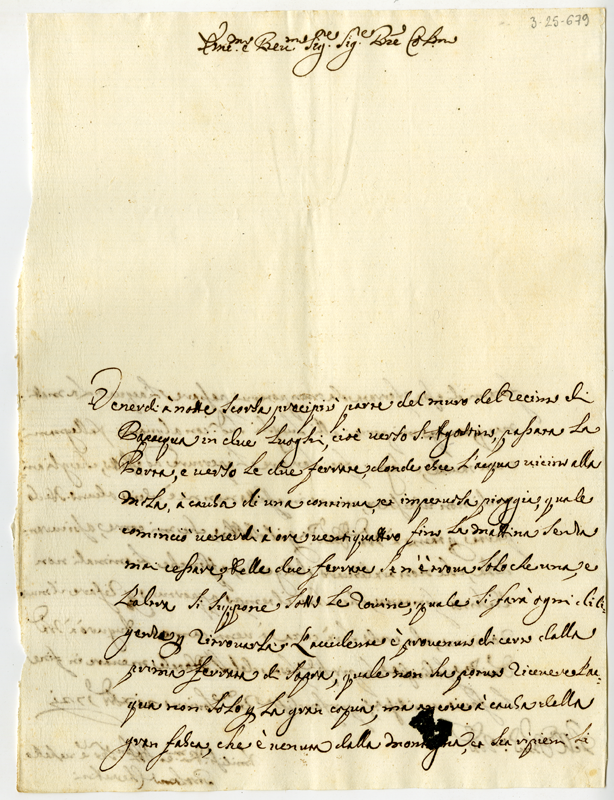 3-25-679
Venerdi à notte scorsa precipitò parte del muro del Recinto di
Bagacqua in due luoghi, cioè verso S. Agostino, passata La
Porta, e verso Le due ferrate, donde esce L'acqua vicino alla
à causa di una continua, et impetuosa pioggia, quale
cominciò venerdi à ore ventiquattro fino La mattina senza
mai cessare, delle due ferrate se n'è trova solo che una, e
L'altra si suppone sotto Le rovine, quale si farà ogni dili-
genza p ritrovarla, L'accidente è provenuto di certo dalla
prima ferrata di sopra, quale non ha potuto ricevere L'ac-
qua non solo p La gran copia, ma ancora à causa della
gran fasca, che è venuta dalla montagna, et ha ripieni li